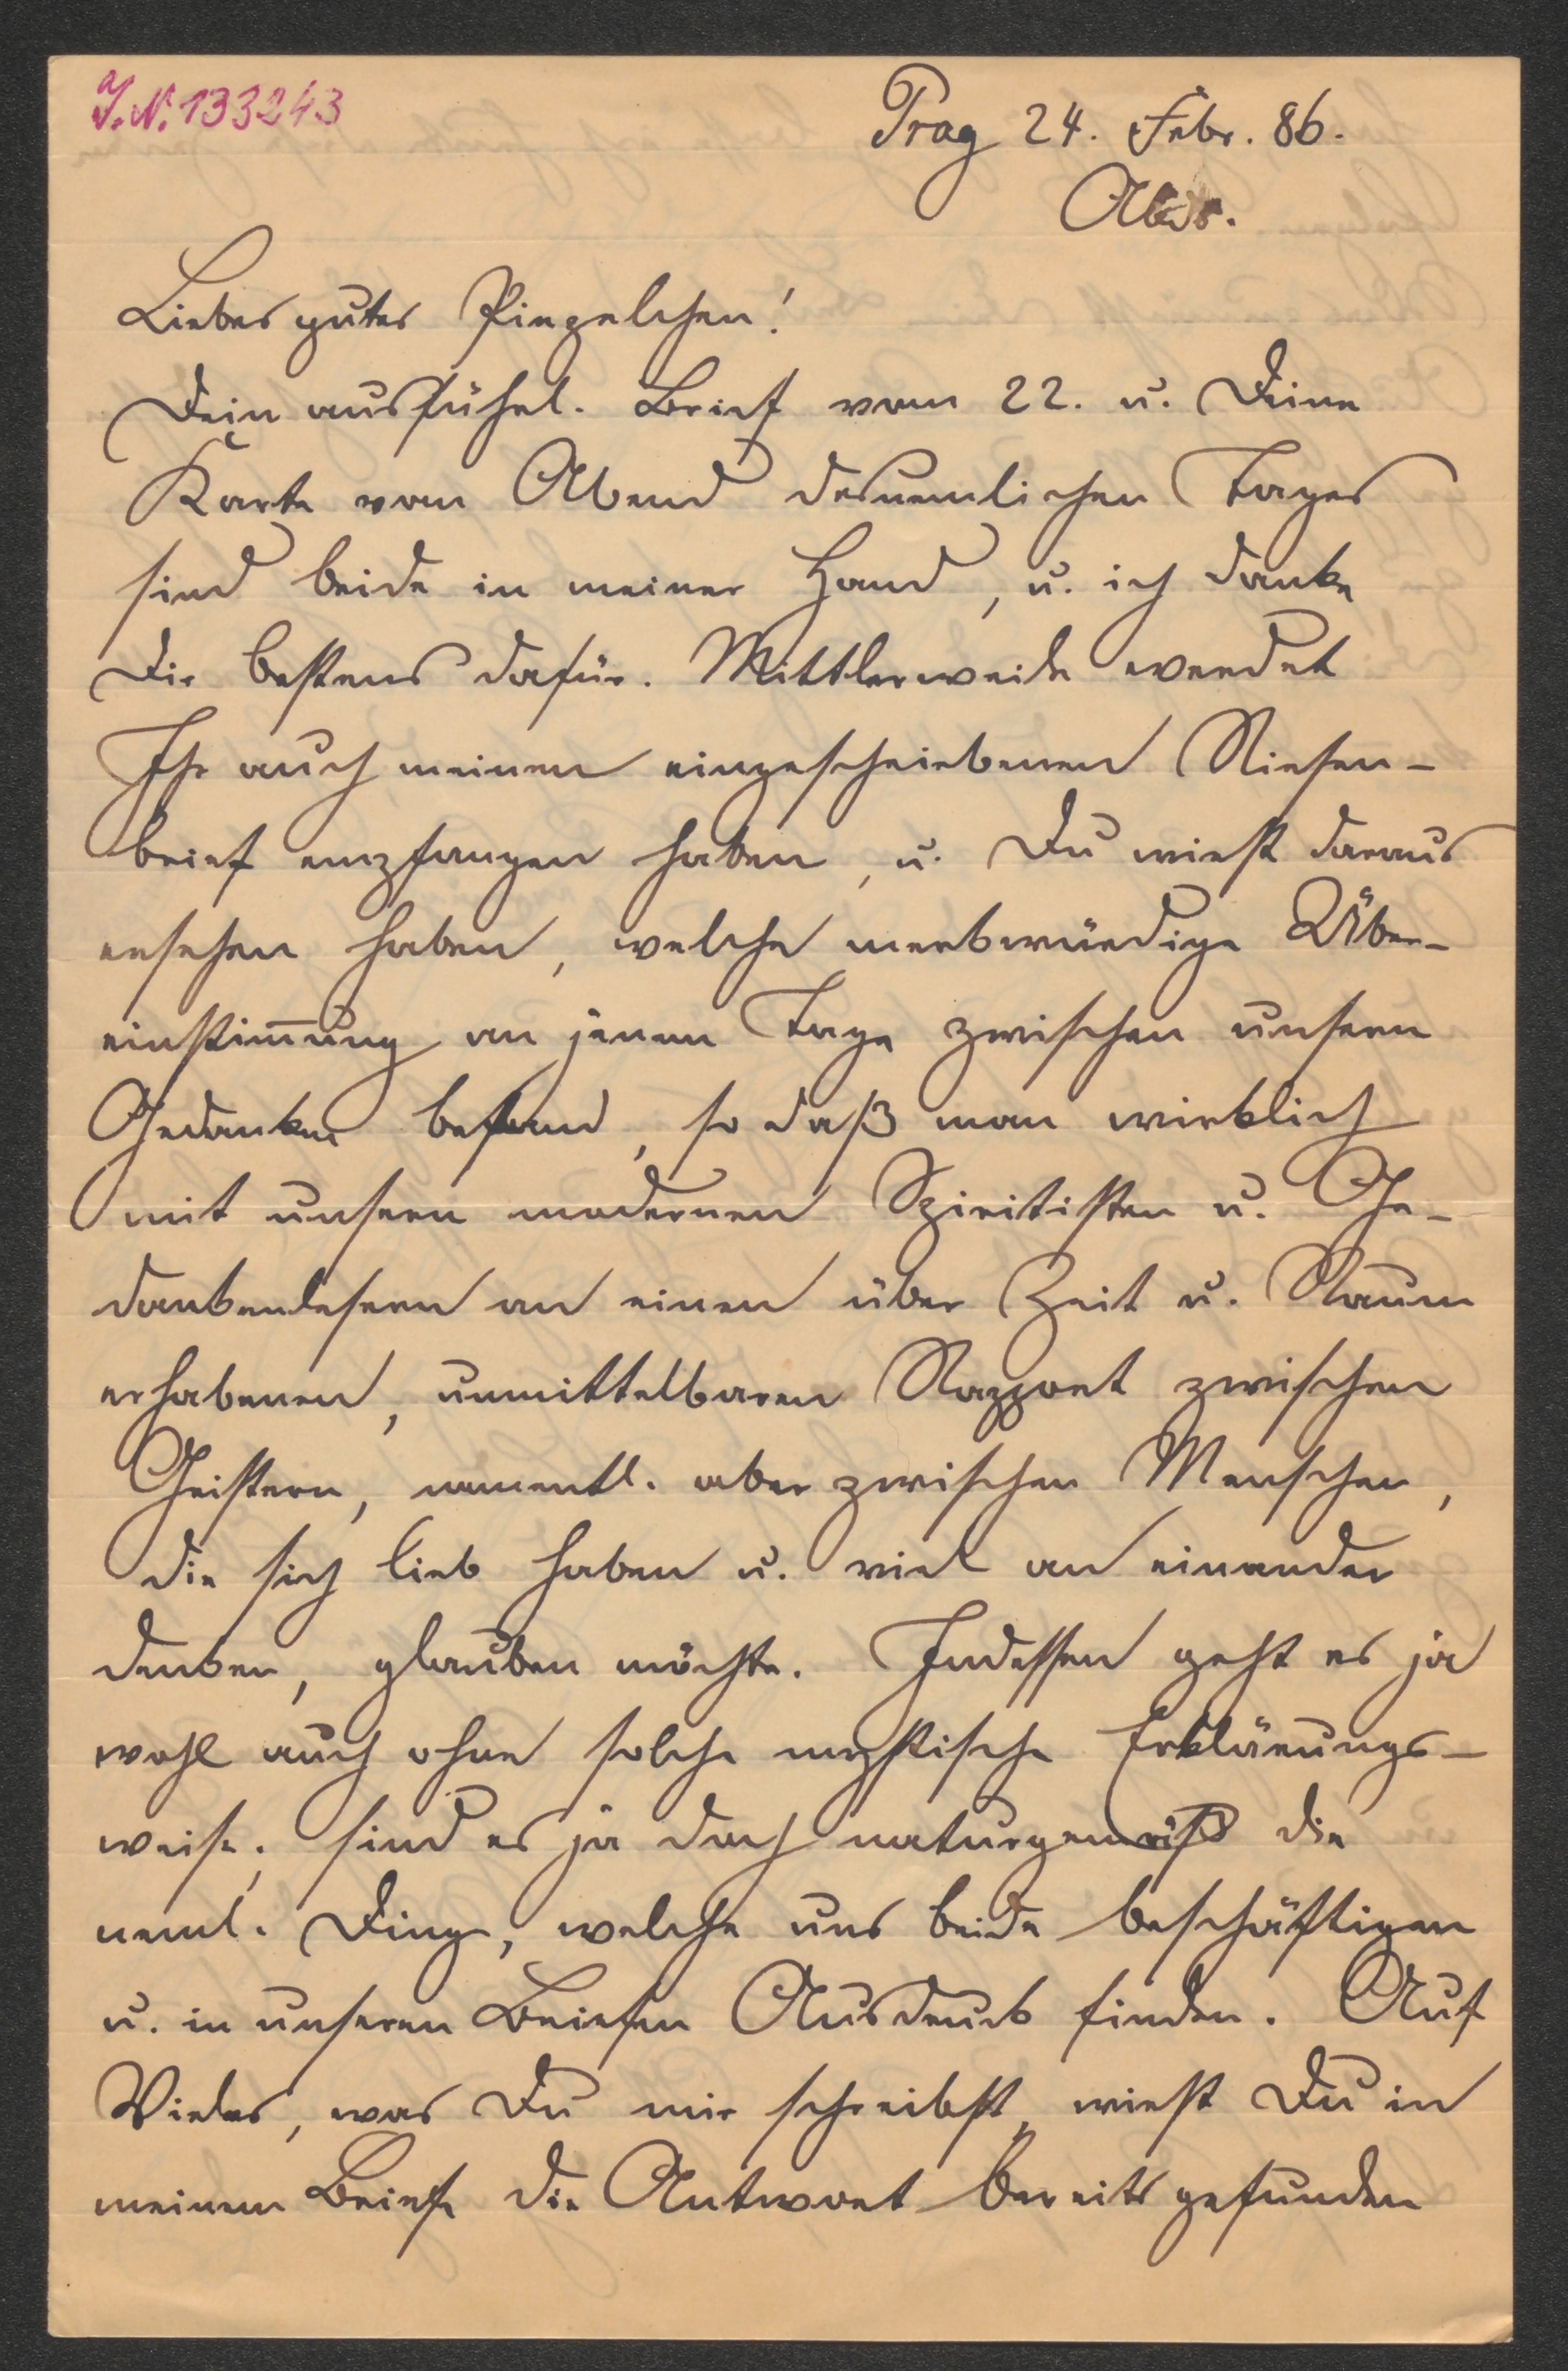 J. N. 133243
Prag 24. Febr. 86.
Abds.
Liebes gutes Pingelchen!
Dein ausführl. Brief vom 22. u. Deine
Karte vom Abend desnemlichen Tages
sind beide in meiner Hand, u. ich danke
Dir bestens dafür. Mittlerweile werdet
Ihr auch meinen eingeschriebenen Riesen-
brief empfangen haben, u. Du wirst daraus
ersehen haben, welche merkwürdige Über-
einstim̅ung an jenem Tage zwischen unsern
Gedanken bestand, so daß man wirklich
mit unsern modernen Spiritisten u. Ge-
dankenlesern an einen über Zeit u. Raum
erhabenen, unmittelbaren Rapport zwischen
Geistern, namentl. aber zwischen Menschen,
die sich lieb haben u. viel an einander
denken, glauben möchte. Indessen geht es ja
wohl auch ohne solche mystische Erklärungs-
weise; sind es ja doch naturgemäß die
neml. Dinge, welche uns beide beschäftigen
u. in unseren Briefen Ausdruck finden. Auf
Vieles, was Du mir schreibst, wirst Du in
meinem Briefe die Antwort bereits gefunden